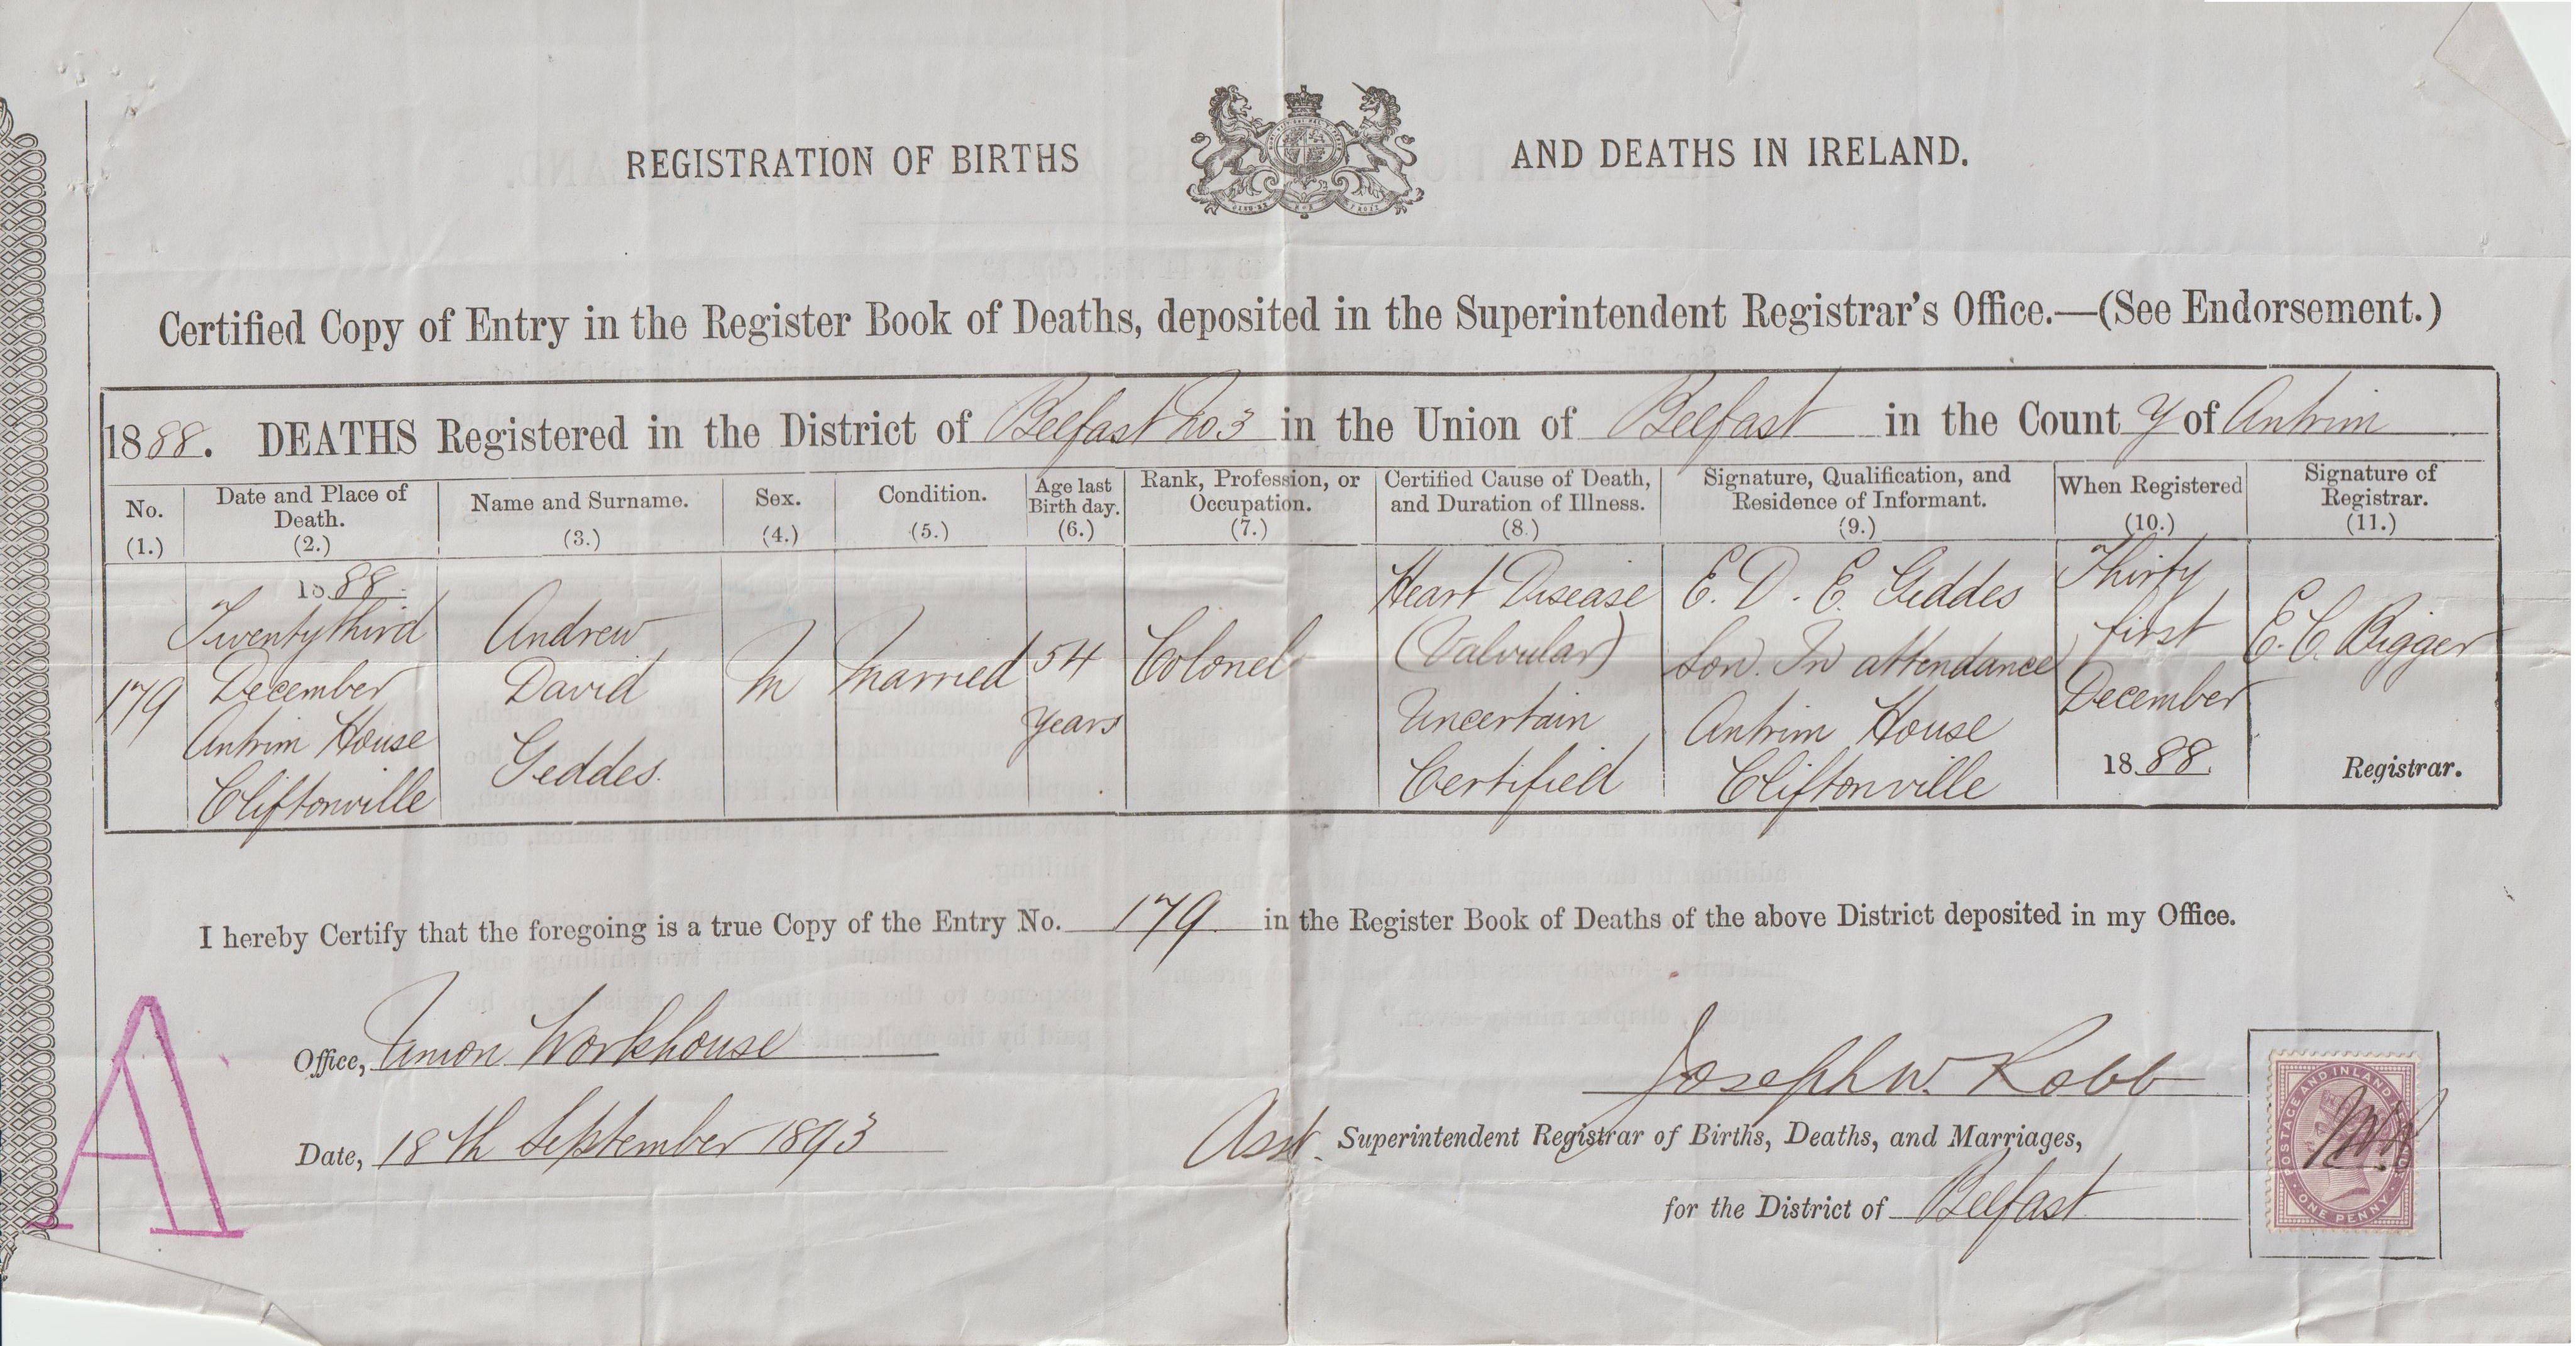 REGISTRATION OF BIRTHS AND DEATHS IN IRELAND.
Certified Copy of Entry in the Register Book of Deaths, deposited in the Superintendent Registrar's Office.—(See Endorsement.)
1888. DEATHS Registered in the District of Belfast No. 3 in the Union of Belfast in the County of Antrim
No.
(1.)
Date and Place of
Death.
(2.)
Name and Surname.
(3.)
Sex.
(4.)
Condition.
(5.)
Age last
Birth day.
(6.)
Rank, Profession, or
Occupation.
(7.)
Certified Cause of Death,
and Duration of Illness.
(8.)
Signature, Qualification, and
Residence of Informant.
(9.)
When Registered
(10.)
Signature of
Registrar.
(11.)
179
1888.
Twenty third
December
Antrim House
Cliftonville
Andrew
David
Geddes.
M
Married
54
years
Colonel
Heart Disease
(Valvular)
Uncertain
Certified
E. D. E. Geddes
Son. In attendance
Antrim House
Cliftonville
Thirty
first
December
1888.
E. C. Bigger
Registrar.
I hereby Certify that the foregoing is a true Copy of the Entry No. 179 in the Register Book of Deaths of the above District deposited in my Office.
Office, Union Workhouse
Joseph W. Robb
Date, 18th September 1893
Asst. Superintendent Registrar of Births, Deaths, and Marriages,
for the District of Belfast
POSTAGE AND INLAND
ONE PENNY
A